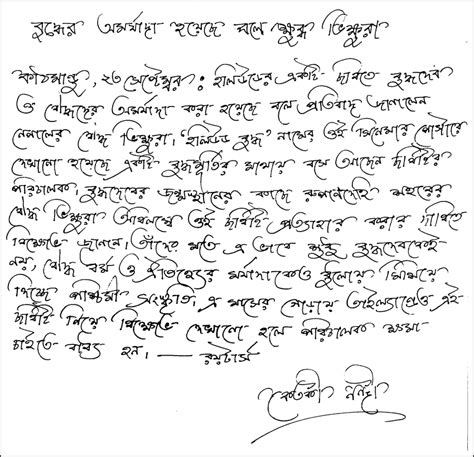 বুদ্ধের অমর্যাদা হয়েছে বলে ক্ষুব্ধ ভিক্ষুরা
কাঠমাণ্ডু, ২৩ সেপ্টেম্বর : হলিউডের একটি ছবিতে বুদ্ধদেব
ও বৌদ্ধদের অমর্যাদা করা হয়েছে বলে প্রতিবাদ জানালেন
নেপালের বৌদ্ধ ভিক্ষুরা। 'হলিউড বুদ্ধ' নামের ওই সিনেমার পোস্টারে
দেখানো হয়েছে একটি বুদ্ধমূর্তির মাথায় বসে আছেন ছবিটির
পরিচালক। বুদ্ধদেবের জন্মস্থানের কাছে রুপনদেহি শহরের
বৌদ্ধ ভিক্ষুরা অবিলম্বে ওই ছবিটি প্রত্যাহার করার দাবিতে
বিক্ষোভ জানান। তাঁদের মতে এ ভাবে শুধু বুদ্ধদেবকেই
নয়, বৌদ্ধ ধর্ম ও ঐতিহ্যের মর্যাদাকেও ধুলোয় মিশিয়ে
দিচ্ছে পশ্চিমী সংস্কৃতি। এ মাসের গোড়ায় তাইল্যান্ডেও এই
ছবিটি নিয়ে বিক্ষোভ দেখানো হলে পরিচালক ক্ষমা
চাইতে বাধ্য হন। — রয়টার্স
কেতকী নন্দী